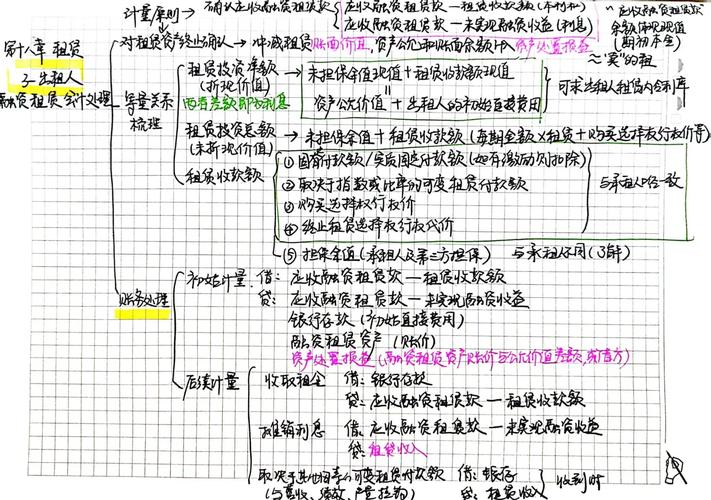 计量原则
应收融资租赁款—租赁收款额(本利和)
应收融资租赁款—未实现融资收益(利息)
应收融资租赁款
余额体现现值
(期初本金)
≈"卖"的租
第十八章 租赁
3-出租人
融资租赁会计处理
对租赁资产终止确认→冲减租赁账面价值,资产公允和账面余额计入资产处置损益
等量关系
梳理
租赁投资净额
(折现价值)
两者差额即为利息
未担保余值现值+租赁收款额现值
资产公允价值+出租人的初始直接费用
可求出租人租赁内含利率
租赁投资总额
(未折现价值)
→未担保余值+租赁收款额(每期金额×租赁+购买选择权行权价等)
租赁收款额
①固定付款额/实质固定付款额(如有激励则扣除)
②取决于指数或比率的可变租赁付款额
③购买选择权行权价
④终止租赁选择权行权代价
与承租人口径一致
⑤担保余值(承租人及第三方担保)
与承租人不同
账务处理
初始计量 借:应收融资租赁款—租赁收款额
贷:应收融资租赁款—未实现融资收益
银行存款(初始直接费用)
融资租赁资产(账价)
资产处置损益(融资租赁资产账价与公允价值差额,或借方)
后续计量
收取租金 借:银行存款
贷:应收融资租赁款—租赁收款额
摊销利息 借:应收融资租赁款—未实现融资收益
贷:租赁收入
取决于其他因素的可变租赁付款额 借:银存
(与营收、绩效、产量挂钩) 贷:租赁收入
收到时